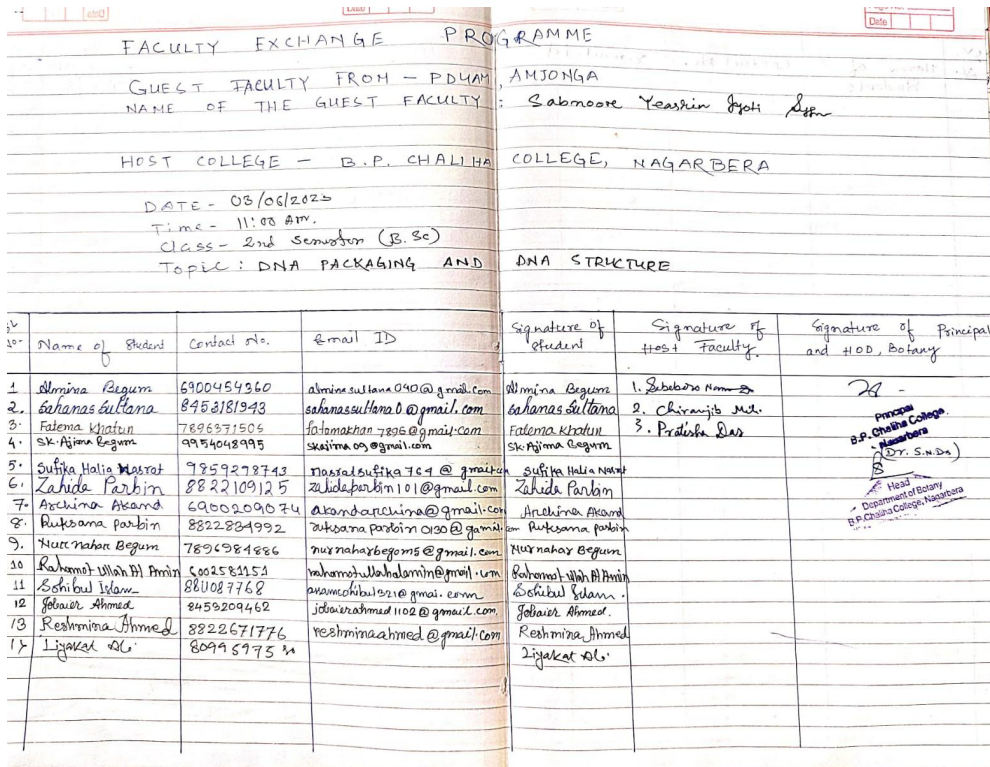 Date
FACULTY EXCHANGE PROGRAMME
GUEST FACULTY FROM – PDUAM, AMJONGA
NAME OF THE GUEST FACULTY : Sabnoore Yeasrin Jyoti
HOST COLLEGE – B.P. CHALIHA COLLEGE, NAGARBERA
DATE - 03/06/2023
Time - 11:00 Am.
Class - 2nd Semester (B.Sc)
Topic : DNA PACKAGING AND DNA STRUCTURE
Name of Student Contact No. Email ID Signature of Student Signature of Host Faculty. Signature of Principal and HOD, Botany
1 Almina Begum 6900454360 alminasultana090@gmail.com Almina Begum 1.
2. Sahanas Sultana 8453181943 sahanassultana0@gmail.com Sahanas Sultana 2. Chiranjib
3. Fatema Khatun 7896371505 fatamakhan7896@gmail.com Fatema Khatun 3. Pratisha Das
4. SK. Ajima Begum 9954048995 skajima09@gmail.com SK. Ajima Begum
5. Sufika Halia Nasrat 9859298743 nasratsufika764@gmail.com Sufika Halia Nasrat
6. Zahida Parbin 8822109125 zahidaparbin101@gmail.com Zahida Parbin
7. Archina Akand 6900209074 akandarchina@gmail.com Archina Akand
8. Ruksana Parbin 8822834992 ruksanaparbin0130@gamil.com Ruksana Parbin
9. Nurnahar Begum 7896984886 nurnaharbegom5@gmail.com Nurnahar Begum
10 Rahamot Ullah Al Amin 6002581151 rahamotullahalamin@gmail.com Rahamot Ullah Al Amin
11 Sohibul Islam 8811087768 Sohibul Islam.
12 Jobaier Ahmed 8453209462 jobaierahmed1102@gmail.com Jobaier Ahmed.
13 Reshmina Ahmed 8822671776 reshminaahmed@gmail.com Reshmina Ahmed
14 Liyakat Ali Liyakat Ali
Principal
B.P. Chaliha College,
Nagarbera
(Dr. S.N.Ds)
Head
Department of Botany
B.P. Chaliha College, Nagarbera